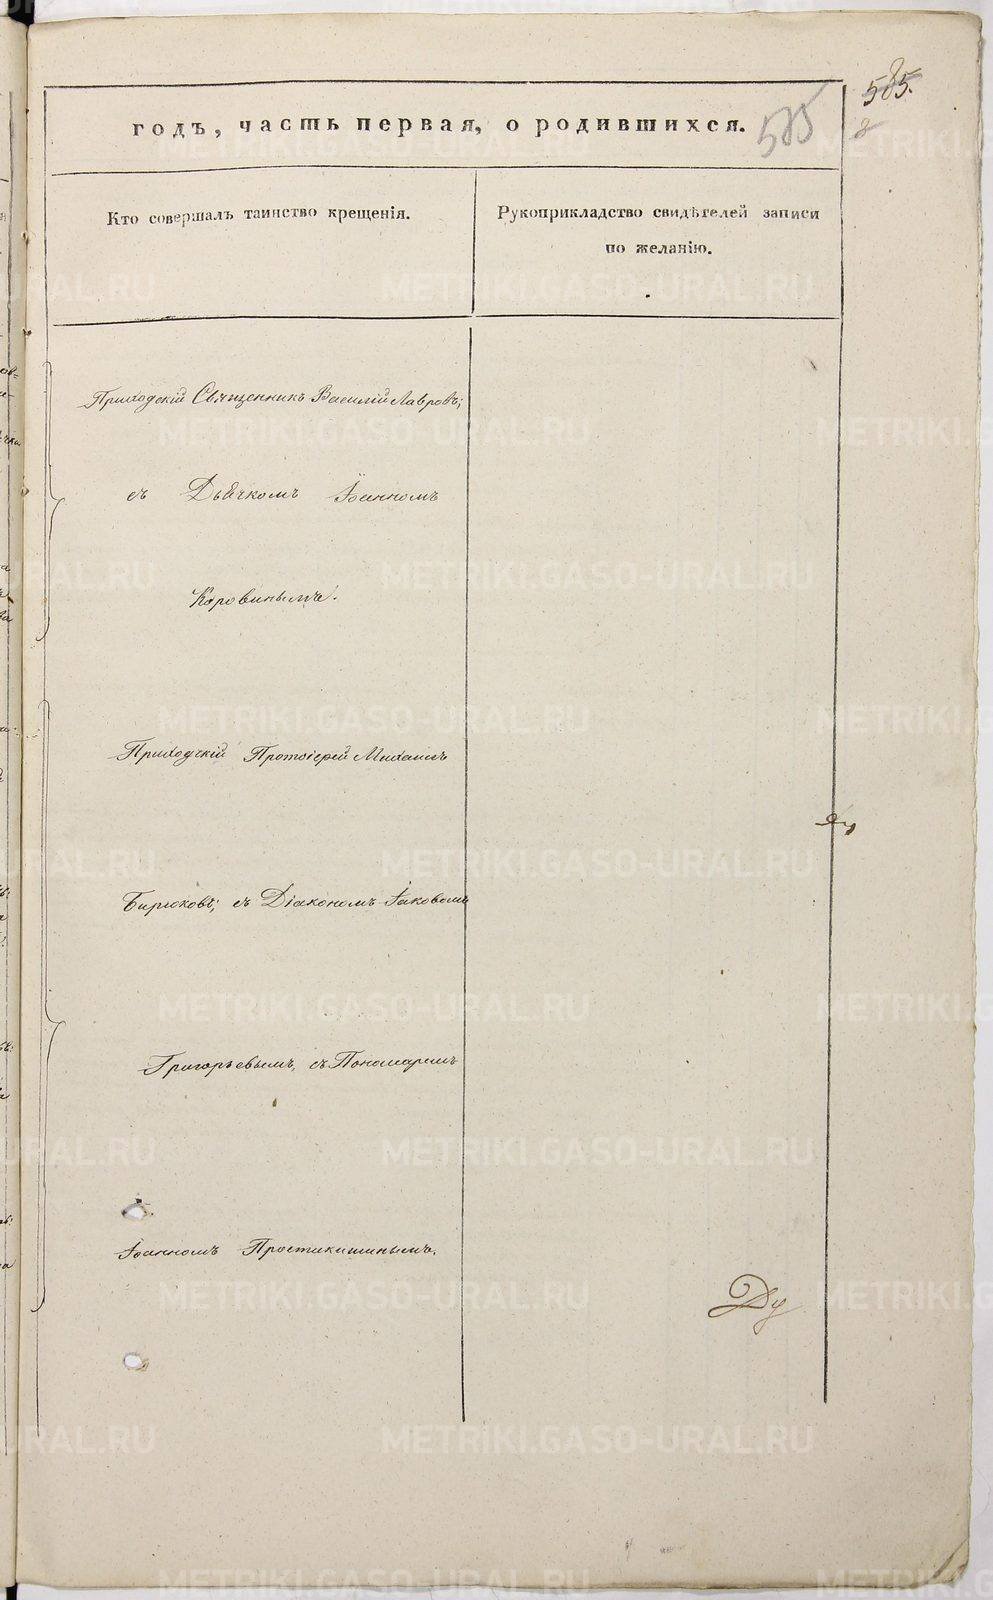 585.
годъ, часть первая, о родившихся.
585
Кто совершалъ таинство крещенія.
Рукоприкладство свидѣтелей записи
по желанію.
Приходскій Священникъ Василій Лавровъ;
съ Дьячкомъ Іоанномъ
Коровинымъ.
Приходскій Протоіерей Михаилъ
Бирюковъ; съ Діакономъ Іаковомъ
Григорьевымъ, съ Пономаремъ
Іоанномъ Простикишинымъ.
METRIKI.GASO-URAL.RU